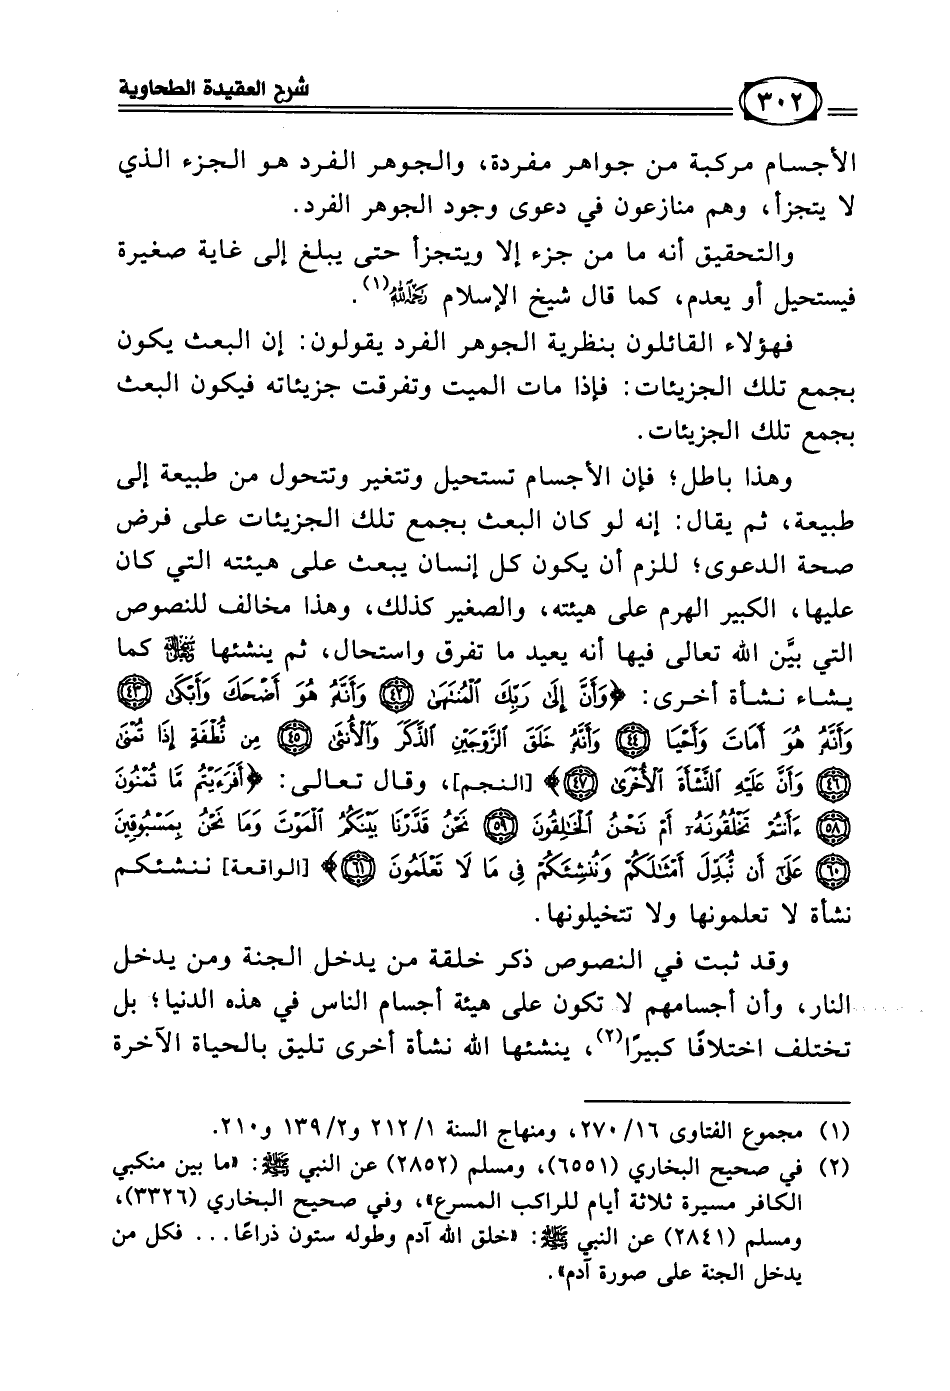 ٣٠٢ شرح العقيدة الطحاوية
الأجسام مركبة من جواهر مفردة، والجوهر الفرد هو الجزء الذي
لا يتجزأ، وهم منازعون في دعوى وجود الجوهر الفرد.
والتحقيق أنه ما من جزء إلا ويتجزأ حتى يبلغ إلى غاية صغيرة
فيستحيل أو يعدم، كما قال شيخ الإسلام رحمه الله(١).
فهؤلاء القائلون بنظرية الجوهر الفرد يقولون: إن البعث يكون
بجمع تلك الجزيئات: فإذا مات الميت وتفرقت جزيئاته فيكون البعث
بجمع تلك الجزيئات.
وهذا باطل؛ فإن الأجسام تستحيل وتتغير وتتحول من طبيعة إلى
طبيعة، ثم يقال: إنه لو كان البعث بجمع تلك الجزيئات على فرض
صحة الدعوى؛ للزم أن يكون كل إنسان يبعث على هيئته التي كان
عليها، الكبير الهرم على هيئته، والصغير كذلك، وهذا مخالف للنصوص
التي بيَّن الله تعالى فيها أنه يعيد ما تفرق واستحال، ثم ينشئها ﷻ كما
يشاء نشأة أخرى: ﴿وَأَنَّ إِلَىٰ رَبِّكَ ٱلْمُنتَهَىٰ ٤٢ وَأَنَّهُۥ هُوَ أَضْحَكَ وَأَبْكَىٰ ٤٣
وَأَنَّهُۥ هُوَ أَمَاتَ وَأَحْيَا ٤٤ وَأَنَّهُۥ خَلَقَ ٱلزَّوْجَيْنِ ٱلذَّكَرَ وَٱلْأُنثَىٰ ٤٥ مِن نُّطْفَةٍ إِذَا تُمْنَىٰ
٤٦ وَأَنَّ عَلَيْهِ ٱلنَّشْأَةَ ٱلْأُخْرَىٰ ٤٧﴾ [النجم]، وقال تعالى: ﴿أَفَرَءَيْتُم مَّا تُمْنُونَ
٥٨ ءَأَنتُمْ تَخْلُقُونَهُۥٓ أَمْ نَحْنُ ٱلْخَٰلِقُونَ ٥٩ نَحْنُ قَدَّرْنَا بَيْنَكُمُ ٱلْمَوْتَ وَمَا نَحْنُ بِمَسْبُوقِينَ
٦٠ عَلَىٰٓ أَن نُّبَدِّلَ أَمْثَٰلَكُمْ وَنُنشِئَكُمْ فِى مَا لَا تَعْلَمُونَ ٦١﴾ [الواقعة] ننشئكم
نشأة لا تعلمونها ولا تتخيلونها.
وقد ثبت في النصوص ذكر خلقة من يدخل الجنة ومن يدخل
النار، وأن أجسامهم لا تكون على هيئة أجسام الناس في هذه الدنيا؛ بل
تختلف اختلافًا كبيرًا(٢)، ينشئها الله نشأة أخرى تليق بالحياة الآخرة
(١) مجموع الفتاوى ٢٧٠/١٦، ومنهاج السنة ٢١٢/١ و١٣٩/٢ و٢١٠.
(٢) في صحيح البخاري (٦٥٥١)، ومسلم (٢٨٥٢) عن النبي ﷺ: «ما بين منكبي
الكافر مسيرة ثلاثة أيام للراكب المسرع»، وفي صحيح البخاري (٣٣٢٦)،
ومسلم (٢٨٤١) عن النبي ﷺ: «خلق الله آدم وطوله ستون ذراعًا... فكل من
يدخل الجنة على صورة آدم».